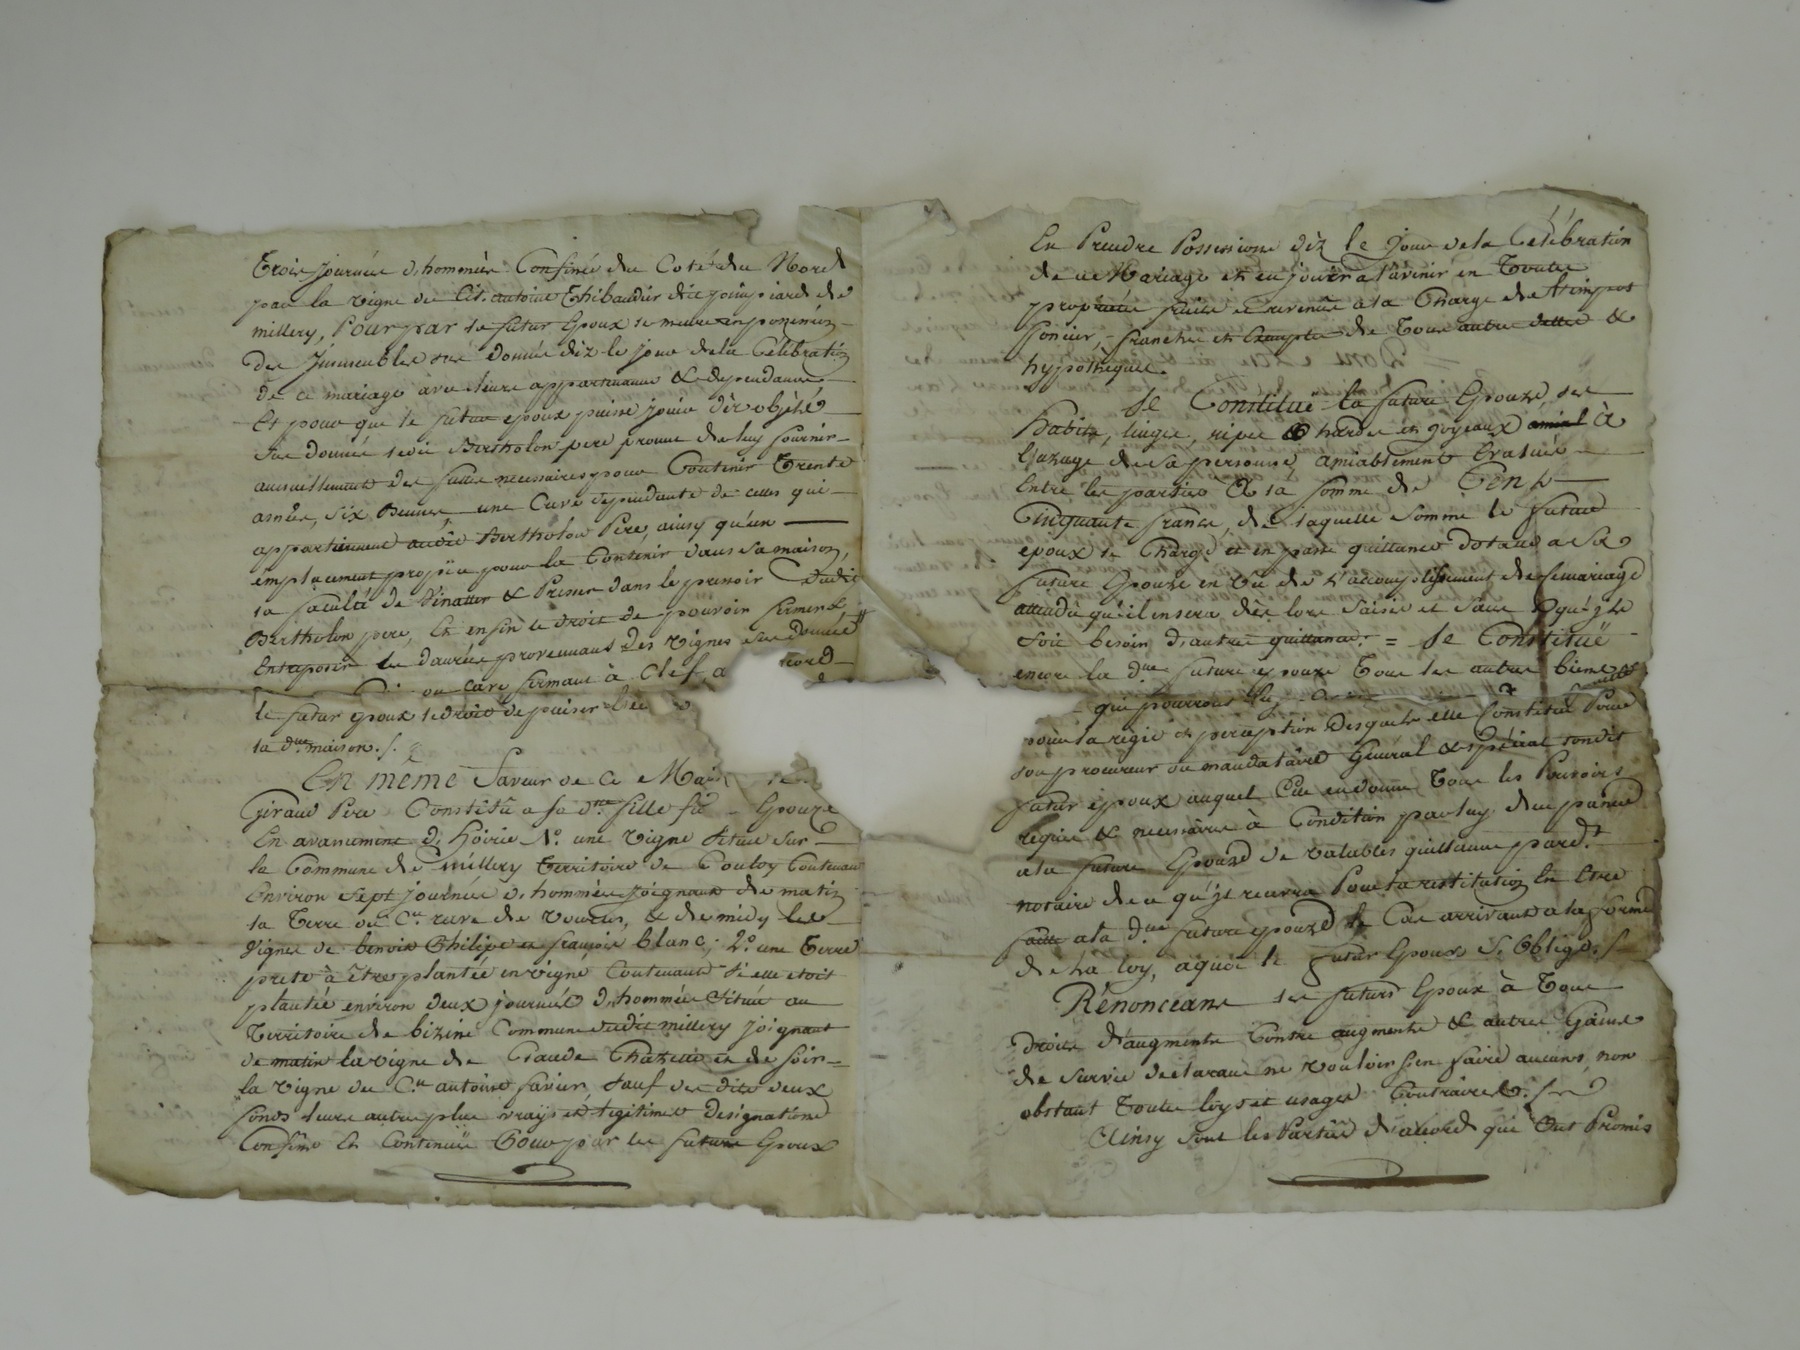 Trois journées d'hommées Confinée du Coté du Nord
par la vigne de Cit. antoine Thibaudier dit
millery, Pour par le futur Epoux se mettre en possession
Des Immeubles sus donnés dèz le jour dela Célébration
de ce mariage avec leurs appartenances & dependances
Et pour que le futur epoux puisse jouir dès objets
sus donnés ledit Bertholon pere promet de luy fournir
annuellement des futes necessaires pour Contenir Trente
anées, six Bennes, une Cuve dependante de celles qui
appartiennent audit Bertholon Père, ainsy qu'un
emplacement propice pour la Contenir dans sa maison,
la faculté de & Presser dans le pressoir dudit
Bertholon pere, Et enfin le droit de pouvoir fermer &
Entreposer les danrées provennans des vignes sus données
ou cave fermant à Clef a cord
le futur epoux le droit de puiser l'eau
la d.ite maison./.
En même faveur de Ce Mar le
Giraud Pere Constitue a sa d.te fille fu Epouze
En avancement d'Hoirie 1.o une vigne située sur
la Commune de millery territoire de Coutoy Contenant
Environ sept journées d'hommées joignant de matin
la Terre du C.en rave de vourles, & de midy les
vignes de benoit Philipe et françois blanc; 2.o une Terre
prete à être plantée en vigne, Contenant si elle etoit
plantée environ deux journées d'hommées située au
Territoire de bizine Commune dudit millery joignant
de matin la vigne de Claude Chazelle et de soir
la vigne du C.en antoine favier, sauf des dits deux
fonds leurs autres plus vrays et legitimes designations
Confins Et Continuë Pour par les future Epoux
En Prendre Possession dèz le jour dela Célébration
de ce Mariage et en jouir a l'avenir en Toutes
propriétés fruits et revenus a la Charge de l'impot
foncier, franches et Exemptes de Toux autres dettes &
hypothèques.
Se Constituë la future Epouze, ses
Habits, linges, nipes & hardes et joyeaux à
l'uzage de sa personne, amiablement Evalués
Entre les parties à la somme de Cent
Cinquante francs, de laquelle somme le futur
epoux se Charge et en passe quittance dotale a sa
future Epouze en vüe de l'accomplissement de ce mariage
attendu qu'il en sera dès lors saisi et sans qu'il y
soit besoin d'autre quittance. = Se Constituë
encore la d.ite future epouze Tous ses autres biens &
qui pourront luy
pour la régie et perception desquels elle Constitue Pour
son procureur ou mandataire Général & spécial sondit
futur époux auquel Elle en donne Tous les Pouvoirs
requis & necessaires à Condition par luy de passer
a la future Epouze de valables quittances pard.t
notaire de ce qu'il recevra Pour la restitution En Etre
faitte a la d.ite future epouze le Cas arrivant a la forme
de La loy, aquoi le futur Epoux S'Oblige./.
Rénonceans les futurs Epoux à Tous
droits d'augments Contre augments & autres Gains
de survie declarant ne vouloir s'en faire aucuns, non
obstant Toutes loys et usages Contraires./.
Ainsy sont les Parties d'accord qui Ont Promis